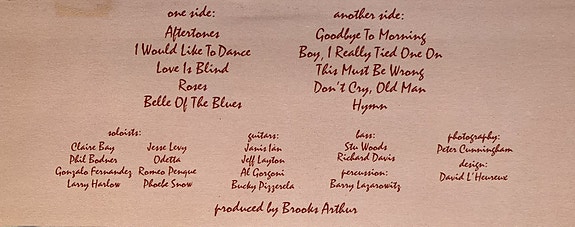 one side:
Aftertones
I Would Like To Dance
Love Is Blind
Roses
Belle Of The Blues
another side:
Goodbye To Morning
Boy, I Really Tied One On
This Must Be Wrong
Don't Cry, Old Man
Hymn
soloists:
Claire Bay
Phil Bodner
Gonzalo Fernandez
Larry Harlow
Jesse Levy
Odetta
Romeo Penque
Phoebe Snow
guitars:
Janis Ian
Jeff Layton
Al Gorgoni
Bucky Pizzerela
bass:
Stu Woods
Richard Davis
percussion:
Barry Lazarowitz
photography:
Peter Cunningham
design:
David L'Heureux
produced by Brooks Arthur